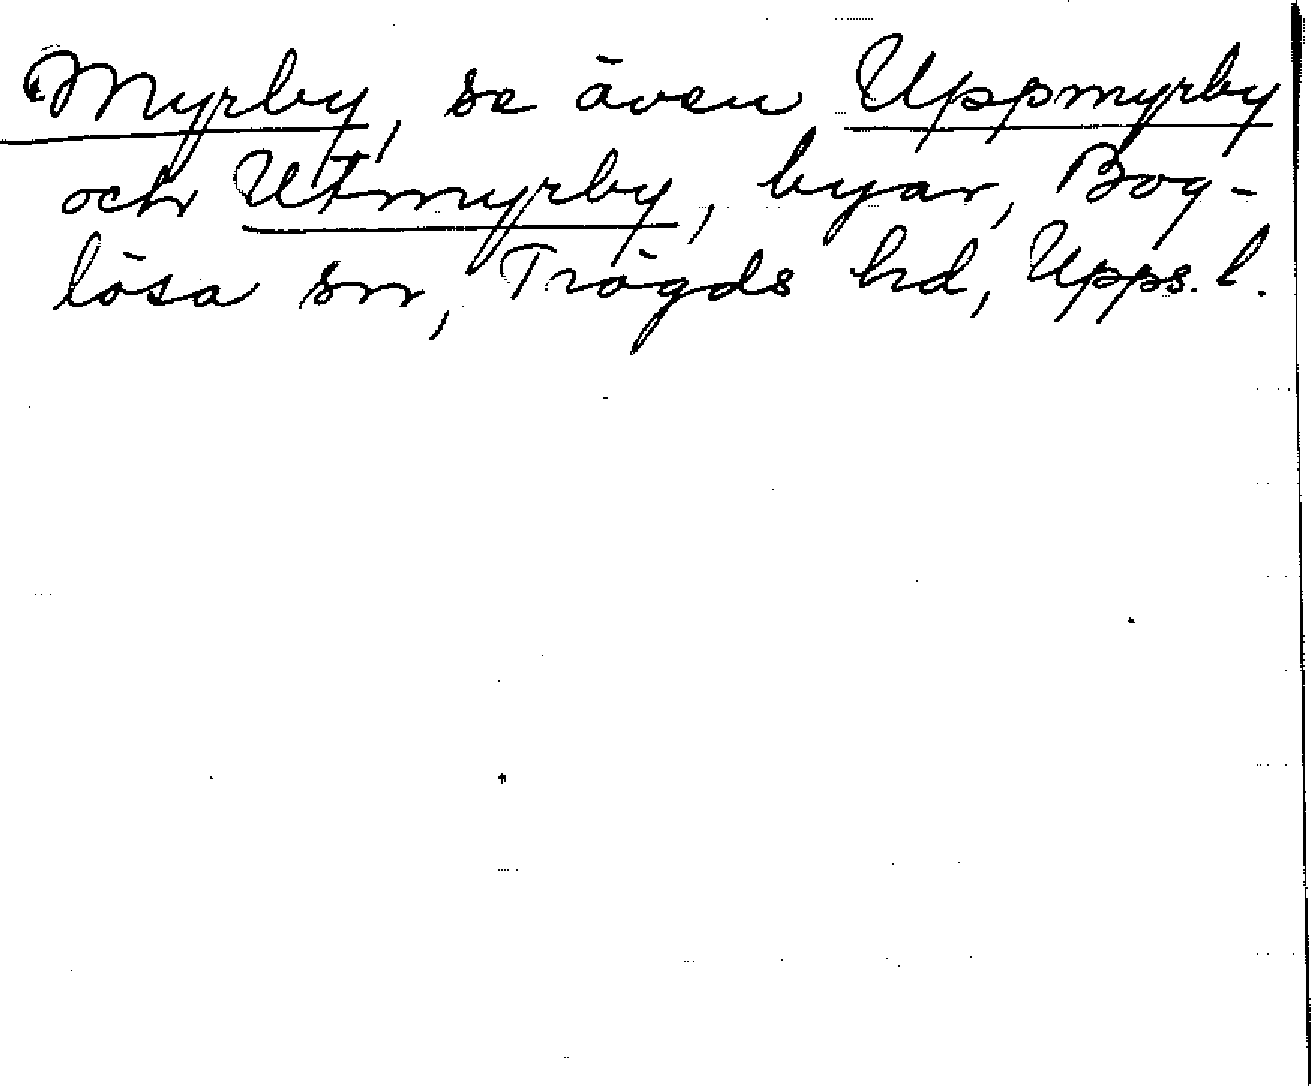 Myrby, se även Uppmyrby
och Utmyrby, byar, Bog-
lösa sn, Trögds hd, Upps. l.